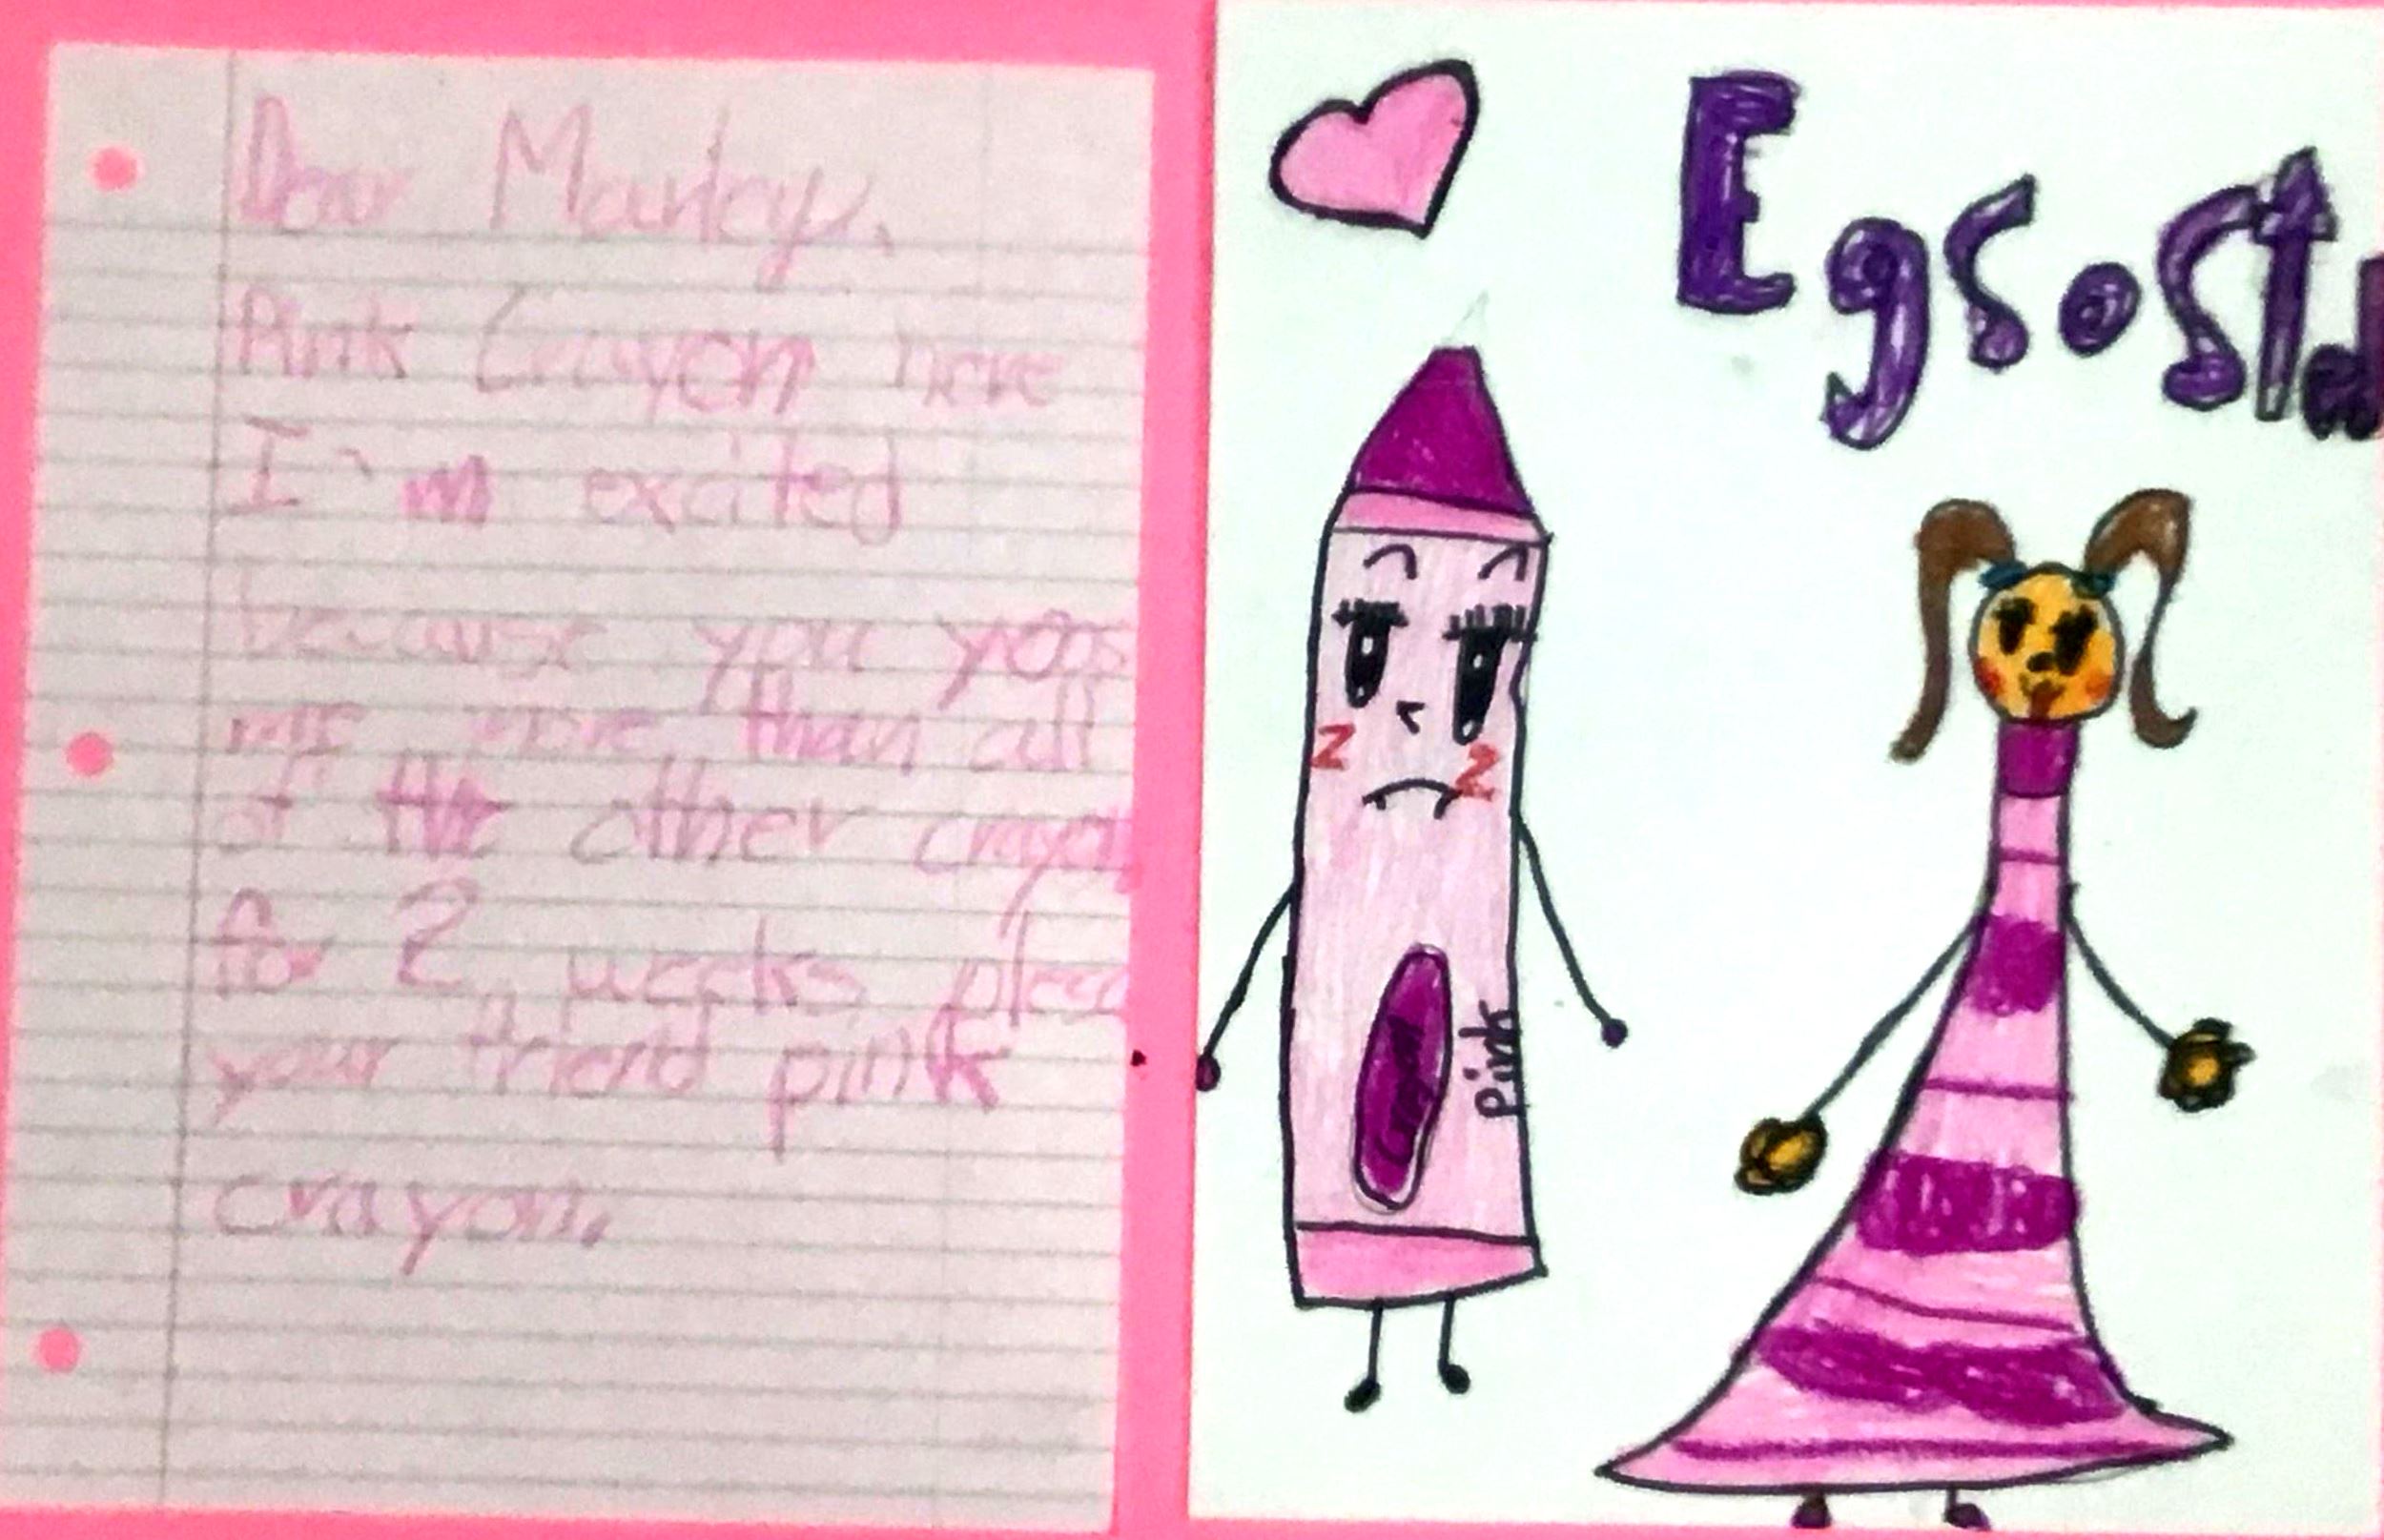 Dear Marley,
Pink Crayon here
I'm excited
because you yoos
me more than all
of the other crayon
for 2 weeks pleas
your friend pink
crayon.
Egsosted
z z
Pink